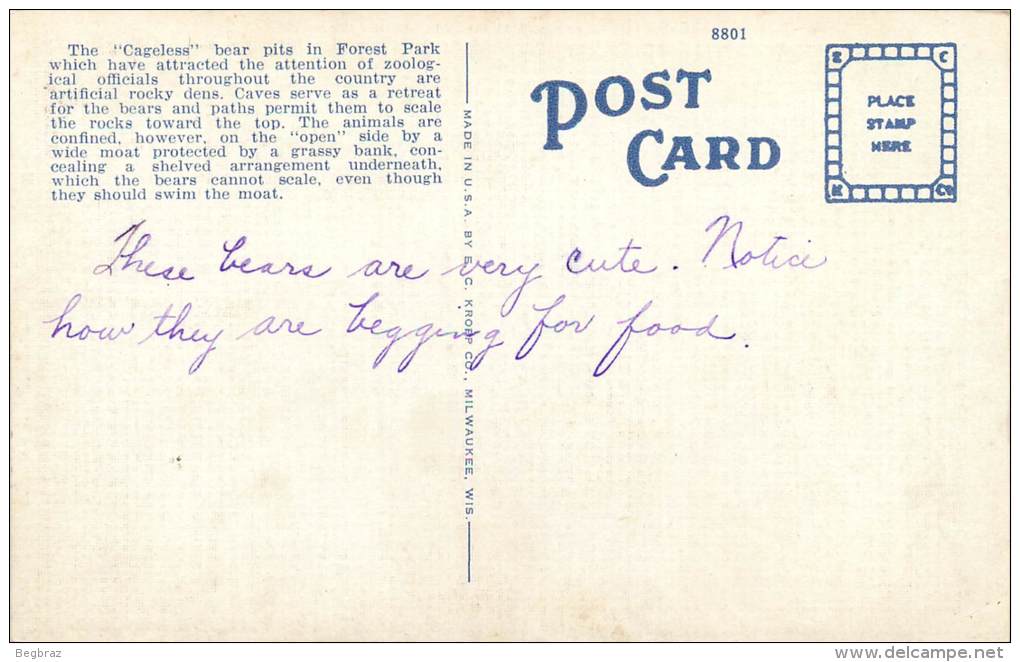 8801
The "Cageless" bear pits in Forest Park
which have attracted the attention of zoolog-
ical officials throughout the country are
artificial rocky dens. Caves serve as a retreat
for the bears and paths permit them to scale
the rocks toward the top. The animals are
confined, however, on the "open" side by a
wide moat protected by a grassy bank, con-
cealing a shelved arrangement underneath,
which the bears cannot scale, even though
they should swim the moat.
POST
CARD
E C
PLACE
STAMP
HERE
K Co
MADE IN U.S.A. BY E. C. KROPP CO., MILWAUKEE, WIS.
These bears are very cute. Notice
how they are begging for food.
Begbraz
www.delcampe.net